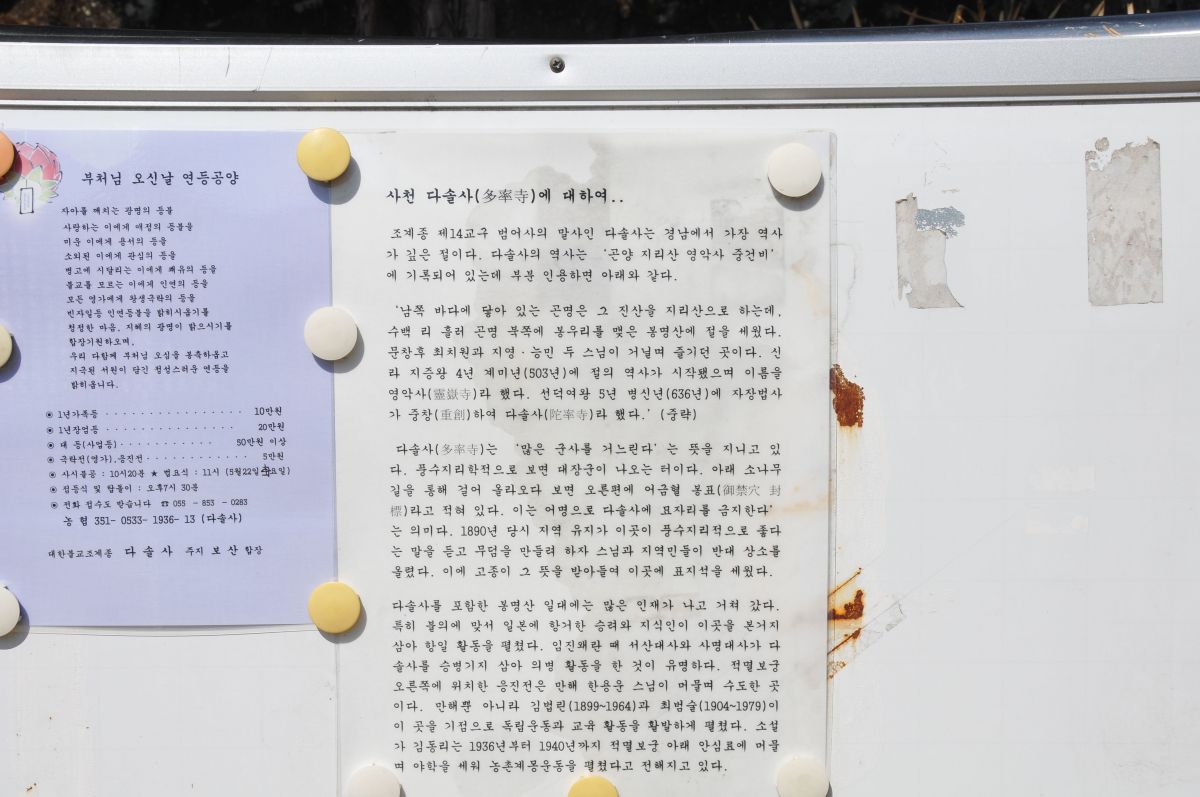 부처님 오신날 연등공양
자아를 깨치는 광명의 등불
사랑하는 이에게 애정의 등불을
미운 이에게 용서의 등을
소외된 이에게 관심의 등을
병고에 시달리는 이에게 쾌유의 등을
불교를 모르는 이에게 인연의 등을
모든 영가에게 왕생극락의 등을
빈자일등 인연등불을 밝히시옵기를
청정한 마음, 지혜의 광명이 맑으시기를
합장기원하오며,
우리 다함께 부처님 오심을 봉축하옵고
지극된 서원이 담긴 정성스러운 연등을
밝히옵니다.
◉ 1년가족등 · · · · · · · · · · · · · · · · 10만원
◉ 1년장엄등 · · · · · · · · · · · · · · · 20만원
◉ 대 등(사업등) · · · · · · · · · · · 50만원 이상
◉ 극락전(영가),응진전 · · · · · · · · · · · · 5만원
◉ 사시불공 : 10시20분 ★ 법요식 : 11시 (5월22일 요일)
◉ 점등식 및 탑돌이 : 오후7시 30분
◉ 전화 접수도 받습니다 ☎ 055 - 853 - 0283
농 협 351- 0533- 1936- 13 (다솔사)
대한불교조계종 다 솔 사 주지 보 산 합장
사천 다솔사(多率寺)에 대하여..
조계종 제14교구 범어사의 말사인 다솔사는 경남에서 가장 역사
가 깊은 절이다. 다솔사의 역사는 '곤양 지리산 영악사 중건비'
에 기록되어 있는데 부분 인용하면 아래와 같다.
'남쪽 바다에 닿아 있는 곤명은 그 진산을 지리산으로 하는데,
수백 리 흘러 곤명 북쪽에 봉우리를 맺은 봉명산에 절을 세웠다.
문창후 최치원과 지영·능민 두 스님이 거닐며 즐기던 곳이다. 신
라 지증왕 4년 계미년(503년)에 절의 역사가 시작됐으며 이름을
영악사(靈嶽寺)라 했다. 선덕여왕 5년 병신년(636년)에 자장법사
가 중창(重創)하여 다솔사(陀率寺)라 했다.' (중략)
다솔사(多率寺)는 '많은 군사를 거느린다' 는 뜻을 지니고 있
다. 풍수지리학적으로 보면 대장군이 나오는 터이다. 아래 소나무
길을 통해 걸어 올라오다 보면 오른편에 어금혈 봉표(御禁穴 封
標)라고 적혀 있다. 이는 어명으로 다솔사에 묘자리를 금지한다'
는 의미다. 1890년 당시 지역 유지가 이곳이 풍수지리적으로 좋다
는 말을 듣고 무덤을 만들려 하자 스님과 지역민들이 반대 상소를
올렸다. 이에 고종이 그 뜻을 받아들여 이곳에 표지석을 세웠다.
다솔사를 포함한 봉명산 일대에는 많은 인재가 나고 거쳐 갔다.
특히 불의에 맞서 일본에 항거한 승려와 지식인이 이곳을 본거지
삼아 항일 활동을 펼쳤다. 임진왜란 때 서산대사와 사명대사가 다
솔사를 승병기지 삼아 의병 활동을 한 것이 유명하다. 적멸보궁
오른쪽에 위치한 응진전은 만해 한용운 스님이 머물며 수도한 곳
이다. 만해뿐 아니라 김법린(1899~1964)과 최범술(1904~1979)이
이 곳을 기점으로 독립운동과 교육 활동을 활발하게 펼쳤다. 소설
가 김동리는 1936년부터 1940년까지 적멸보궁 아래 안심료에 머물
며 야학을 세워 농촌계몽운동을 펼쳤다고 전해지고 있다.